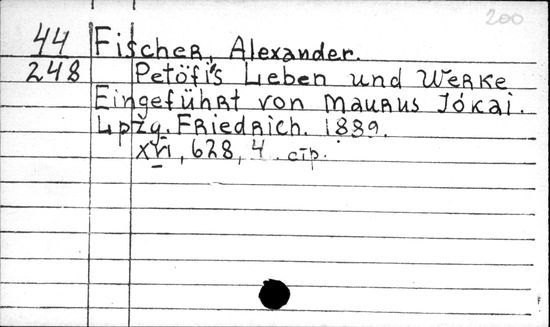 200
44 Fischer, Alexander.
248 Petöfi's Leben und Werke
Eingeführt von Maurus Jókai.
Lpzg. Friedrich. 1889.
XVI, 628, 4. стр.